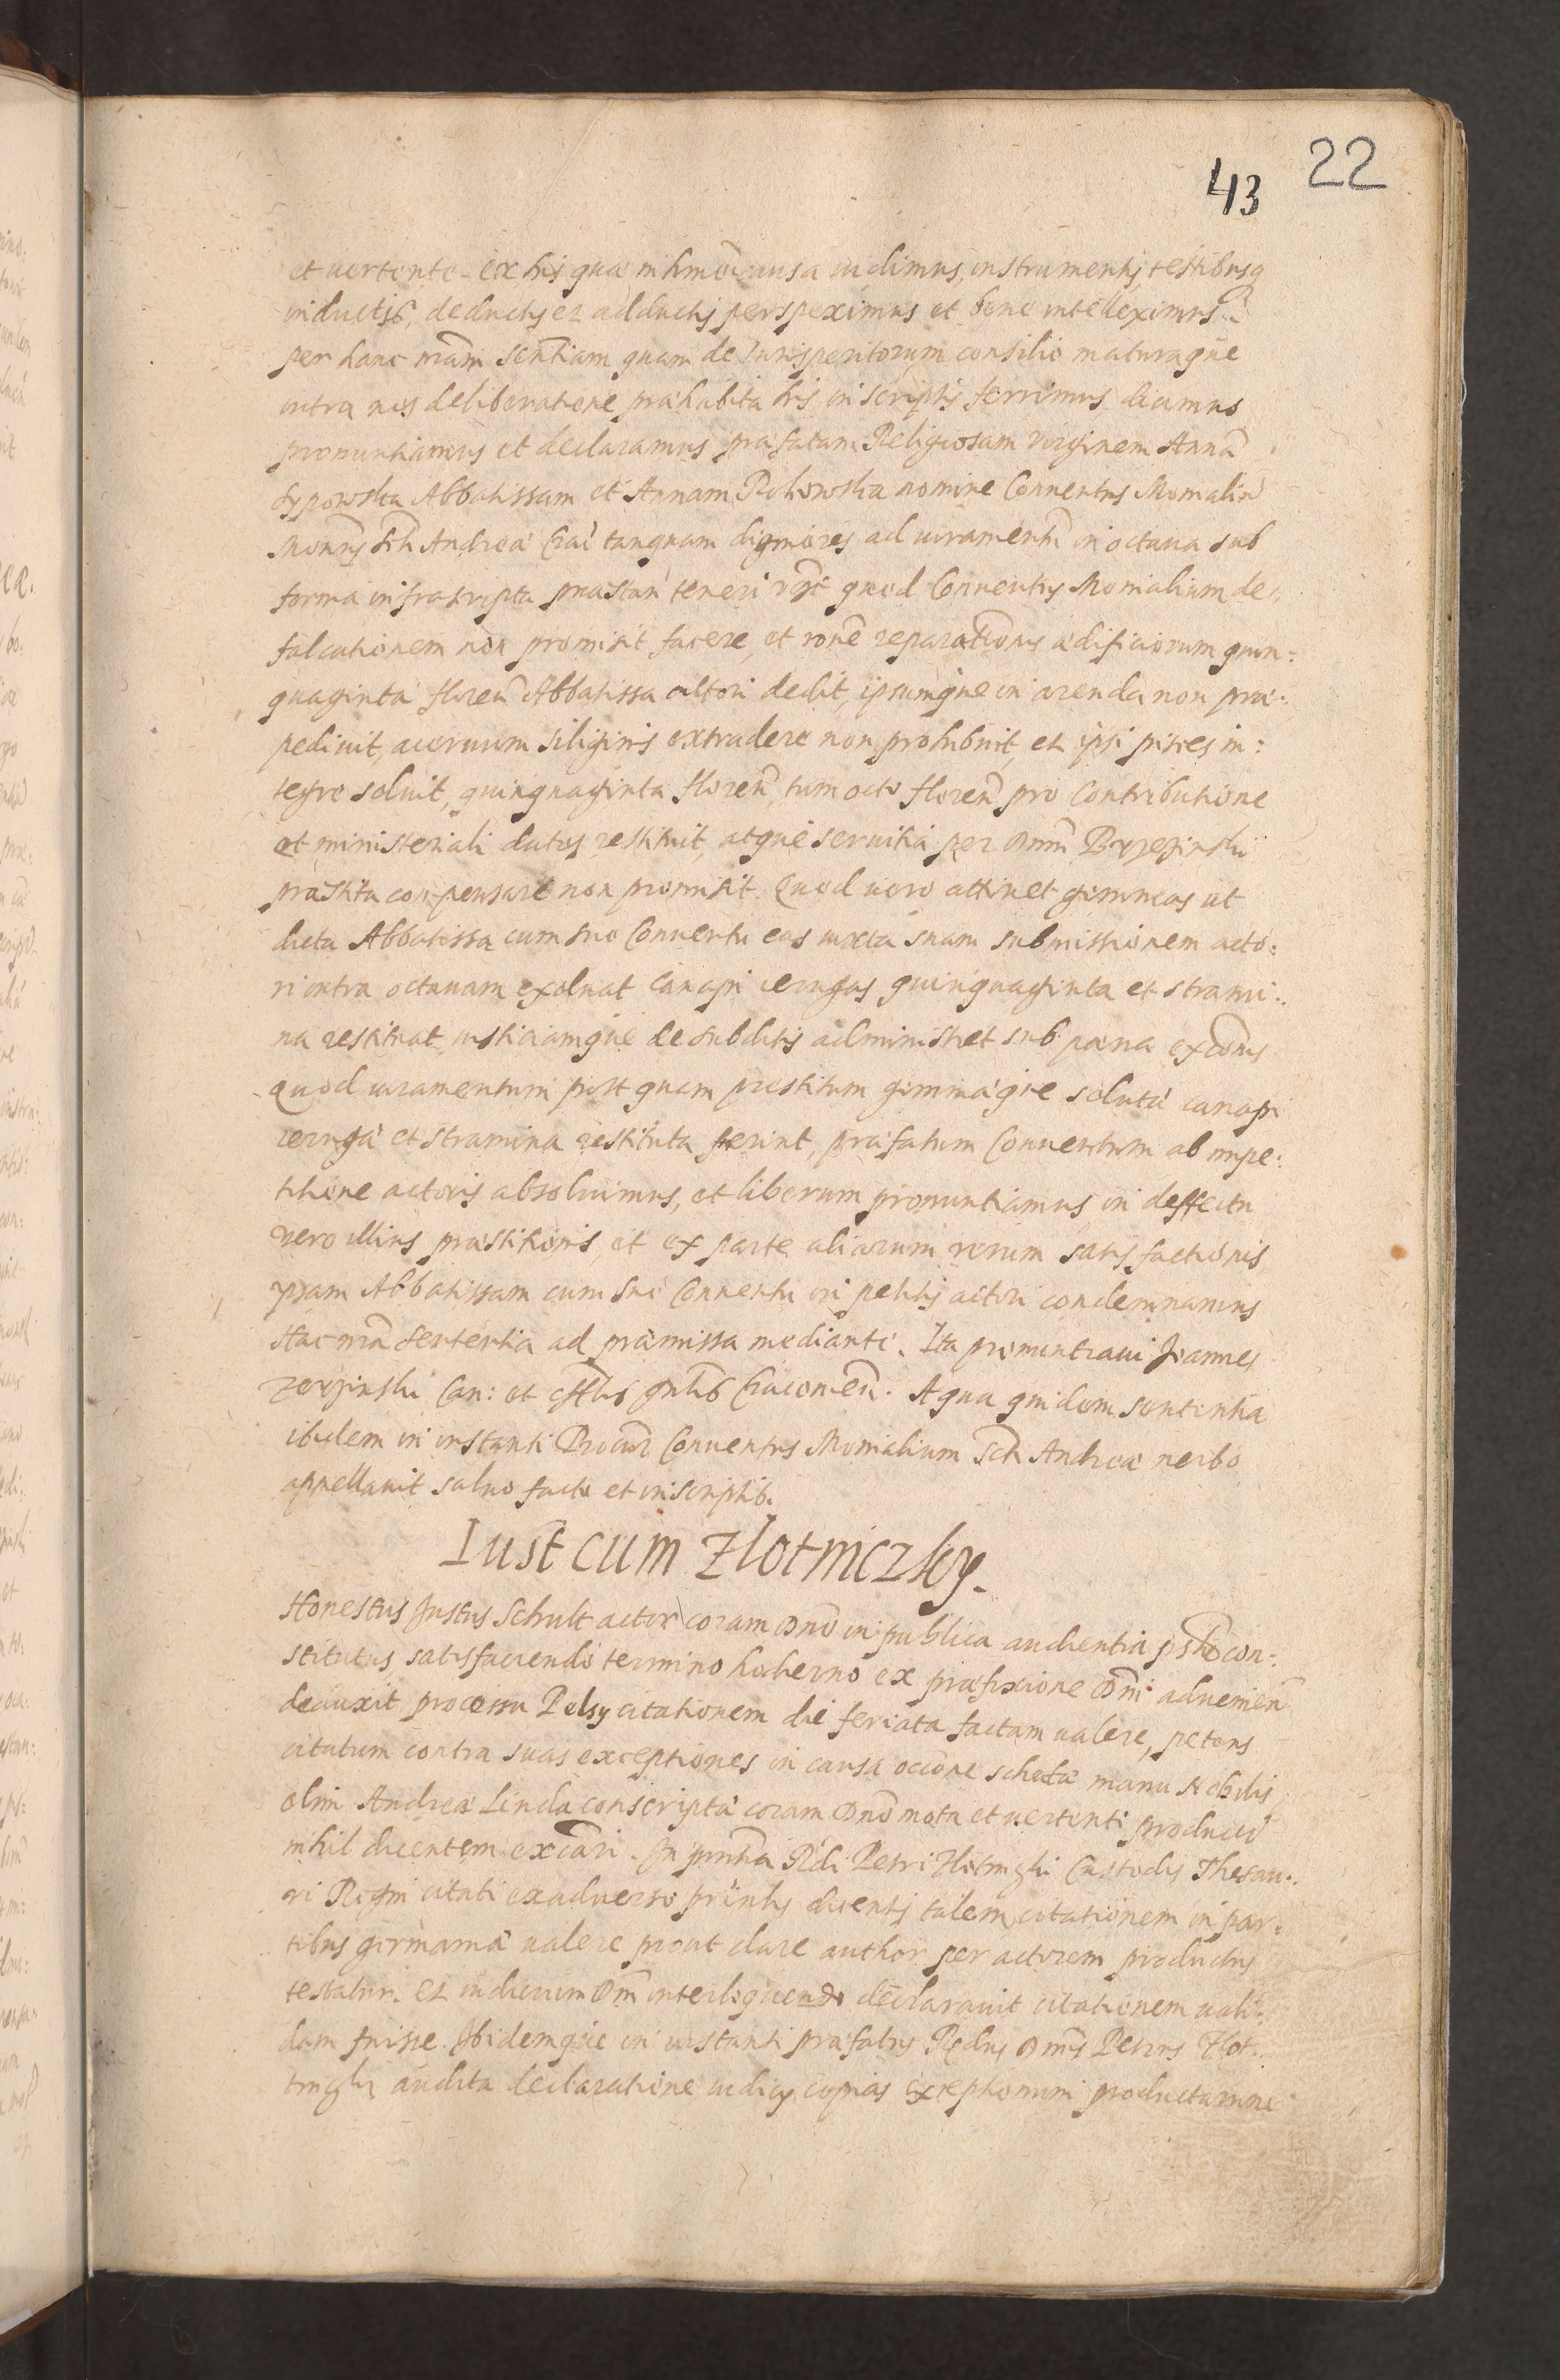 22
43
et uertente ex his quae in hmōi causa uidimus, instrumentis, testibusq
inductis, deductis et adductis perspeximus et bene intelleximus
per hanc nrām sentīam quam de Iurisperitorum consilio maturaque
intra nos deliberatione praehabita his in scriptis ferrimus, dicimus
pronuntiamus et declaramus praefatam Religiosam virginem Annā
Abbatissam et Annam Rokowska nomine Conuentus Monialiū
Andreae Crac̄ tanquam digniores ad iuramentū in octaua sub
forma infrascripta praestan̄ teneri quod Conuentus Monialium de
falcationem non promisit facere, et ronē reparationis aedificiorum quin:
quaginta floren̄ Abbatissa actori dedit, ipsumque in arenda non prae:
pediuit, aceruum siliginis extradere non prohibuit, et ipsi pisces in:
tegre soluit, quinquaginta floren̄, tum octo floren̄ pro contributione
et ministeriali datos restituit, atque seruitia per Dnm̄ Brzezinski
praestita conpensare non promisit. Quod uero attinet gemmeas ut
dicta Abbatissa cum suo Conuentu eas iuxta suam submissionem acto:
ri intra octauam exoluat canapi quinquaginta et strami:
na restituat, iusticiamque de subditis administret sub paena excōnis
Quod iuramentum post quam prestitum gemmaeque solutae canapi
et stramina restituta fuerint, praefatum Conuentum ab impe:
titione actoris absoluimus, et liberum pronuntiamus in deffectu
uero illius praestitionis, et ex parte aliarum rerum satisfactionis
ipsam Abbatissam cum suo Conuentu in petitis actori condemnamus
Hac nrā sententia ad praemissa mediante. Ita pronuntiaui Joannes
Can: et offlis gnlis Cracouien̄. A qua quidem sententia
ibidem in instanti Procur̄ Conuentus Monialium Scti Andreae uerbo
appellauit saluo facto et in scriptis.
Iust cum Zlotniczky.
Honestus Justus Schult actor coram Dnō in publica audientia con:
stitutus satisfaciendo termino hodierno ex praefixione Dni adueniēn
deduxit processu Pelsy citationem die feriata factam ualere, petens
citatum contra suas exceptiones in causa occōne schedae manu Nobilis
olim Andreae Linda conscriptae coram Dnō mota et uertenti producere
nihil dicentem excōari. In pnntia Rdi Petri Zlotniczki Custodis Thesau:
ri Regni citati ex aduerso dicentis talem citationem in par:
tibus germaniae ualere prout clare author per actorem productus
testatur. Et iudicium Dni interloquendo declarauit citationem uali:
dam fuisse. Ibidemque in instanti praefatus Rndus Dnus Petrus Zlot:
niczki audita declaratione iudicij copias exceptionum productarum